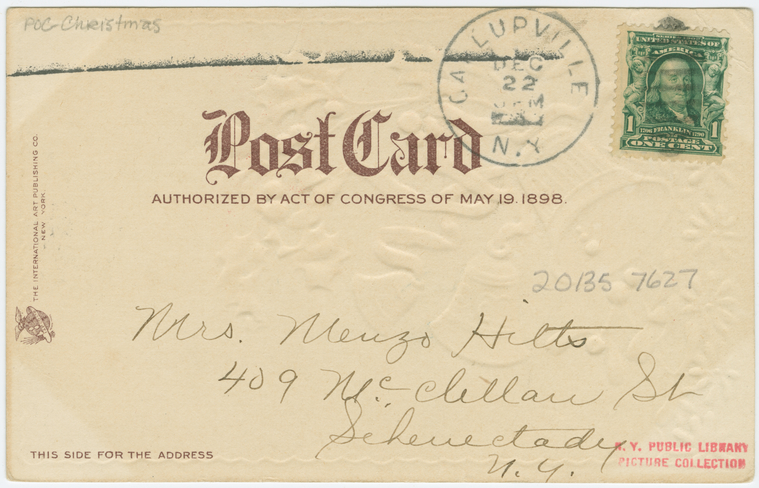 POC-Christmas
GALLUPVILLE
DEC
22
M
N.Y.
SERIES 1902
UNITED STATES OF
AMERICA
1706 FRANKLIN 1790
1 POSTAGE 1
ONE CENT
Post Card
AUTHORIZED BY ACT OF CONGRESS OF MAY 19. 1898.
THE INTERNATIONAL ART PUBLISHING CO.
NEW YORK
20135 7627
Mrs. Menzo Hilts
409 McClellan St
Schenectady
N.Y.
THIS SIDE FOR THE ADDRESS
N. Y. PUBLIC LIBRARY
PICTURE COLLECTION